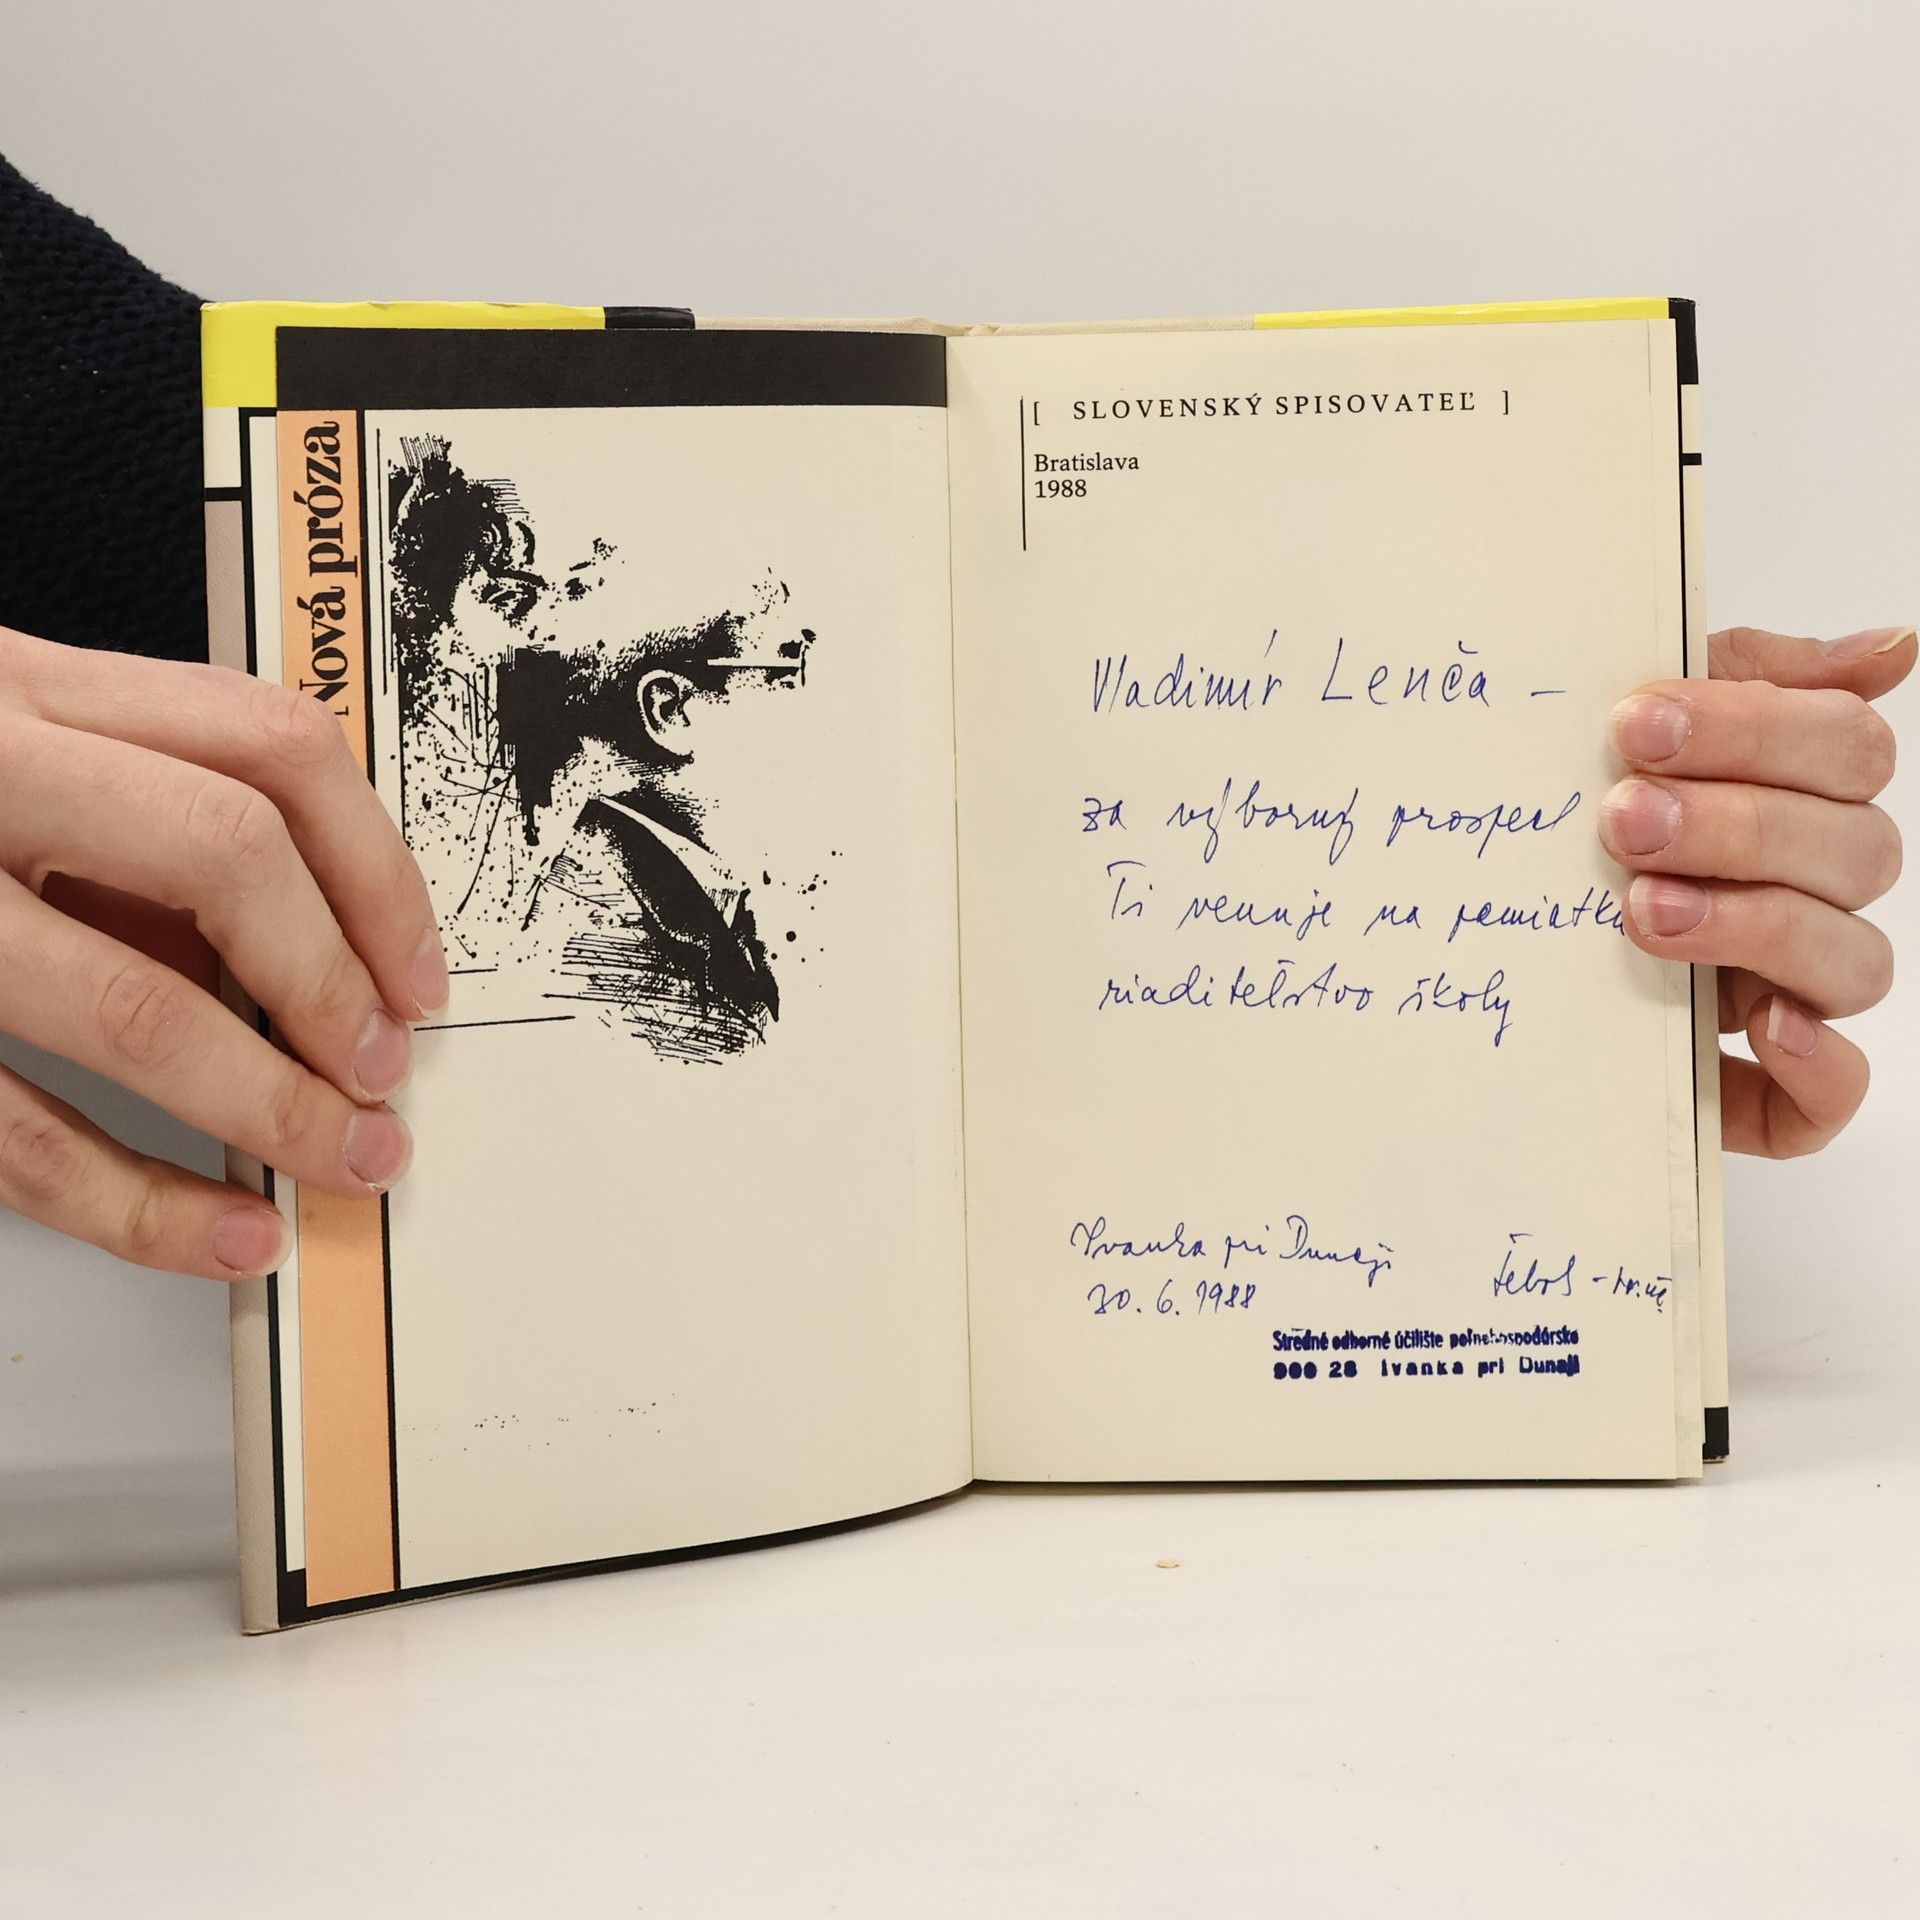 Nová próza
[ SLOVENSKÝ SPISOVATEĽ ]
Bratislava
1988
Vladimír Lenča –
za výborný prospech
Ti venuje na pamiatku
riaditeľstvo školy
Ivanka pri Dunaji
30. 6. 1988
Stredné odborné účilište poľnohospodárske
900 28 Ivanka pri Dunaji